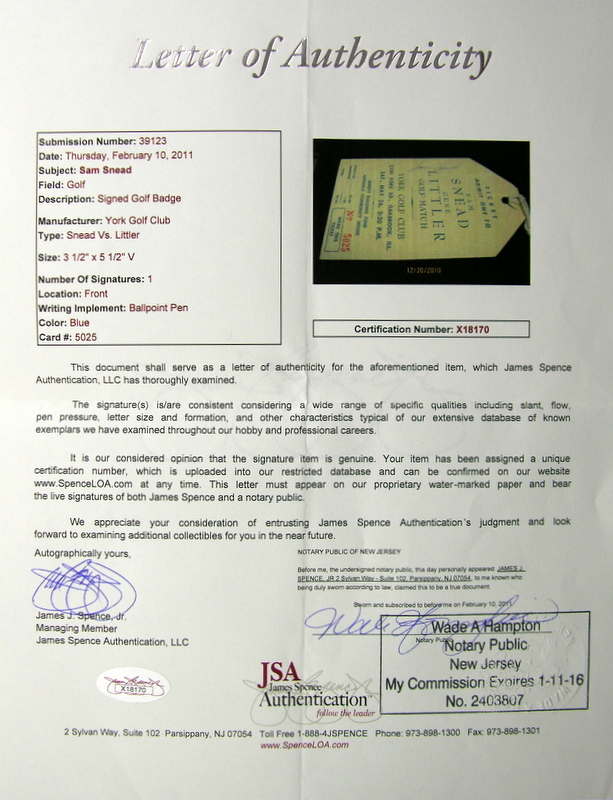 Letter of Authenticity
Submission Number: 39123
Date: Thursday, February 10, 2011
Subject: Sam Snead
Field: Golf
Description: Signed Golf Badge
Manufacturer: York Golf Club
Type: Snead Vs. Littler
Size: 3 1/2" x 5 1/2" V
Number Of Signatures: 1
Location: Front
Writing Implement: Ballpoint Pen
Color: Blue
Card #: 5025
TICKET
ADMIT ONE TO
SAM
SNEAD
GENE
LITTLER
GOLF MATCH
YORK GOLF CLUB
No 5025
12/20/2010
Certification Number: X18170
This document shall serve as a letter of authenticity for the aforementioned item, which James Spence
Authentication, LLC has thoroughly examined.
The signature(s) is/are consistent considering a wide range of specific qualities including slant, flow,
pen pressure, letter size and formation, and other characteristics typical of our extensive database of known
exemplars we have examined throughout our hobby and professional careers.
It is our considered opinion that the signature item is genuine. Your item has been assigned a unique
certification number, which is uploaded into our restricted database and can be confirmed on our website
www.SpenceLOA.com at any time. This letter must appear on our proprietary water-marked paper and bear
the live signatures of both James Spence and a notary public.
We appreciate your consideration of entrusting James Spence Authentication's judgment and look
forward to examining additional collectibles for you in the near future.
Autographically yours,
James J. Spence, Jr.
Managing Member
James Spence Authentication, LLC
NOTARY PUBLIC OF NEW JERSEY
Before me, the undersigned notary public, this day personally appeared JAMES J.
SPENCE, JR 2 Sylvan Way - Suite 102, Parsippany, NJ 07054, to me known who
being duly sworn according to law, claimed this to be a true document.
Sworn and subscribed to before me on February 10, 2011
Notary Public
Wade A Hampton
Notary Public
New Jersey
My Commission Expires 1-11-16
No. 2403807
X18170
JSA
James Spence
Authentication
follow the leader
2 Sylvan Way, Suite 102 Parsippany, NJ 07054 Toll Free 1-888-4JSPENCE Phone: 973-898-1300 Fax: 973-898-1301
www.SpenceLOA.com